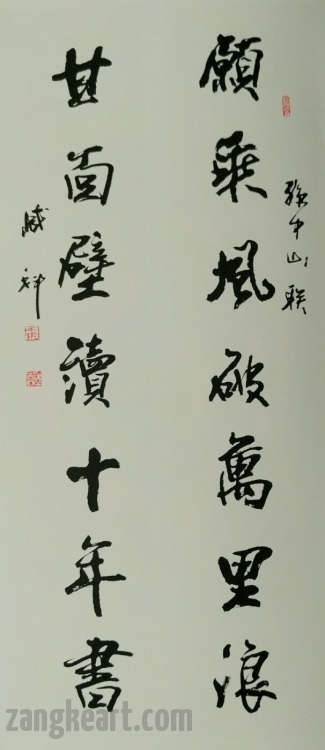 孫中山聯
願乘風破萬里浪
甘面壁讀十年書
臧科
zangkeart.com